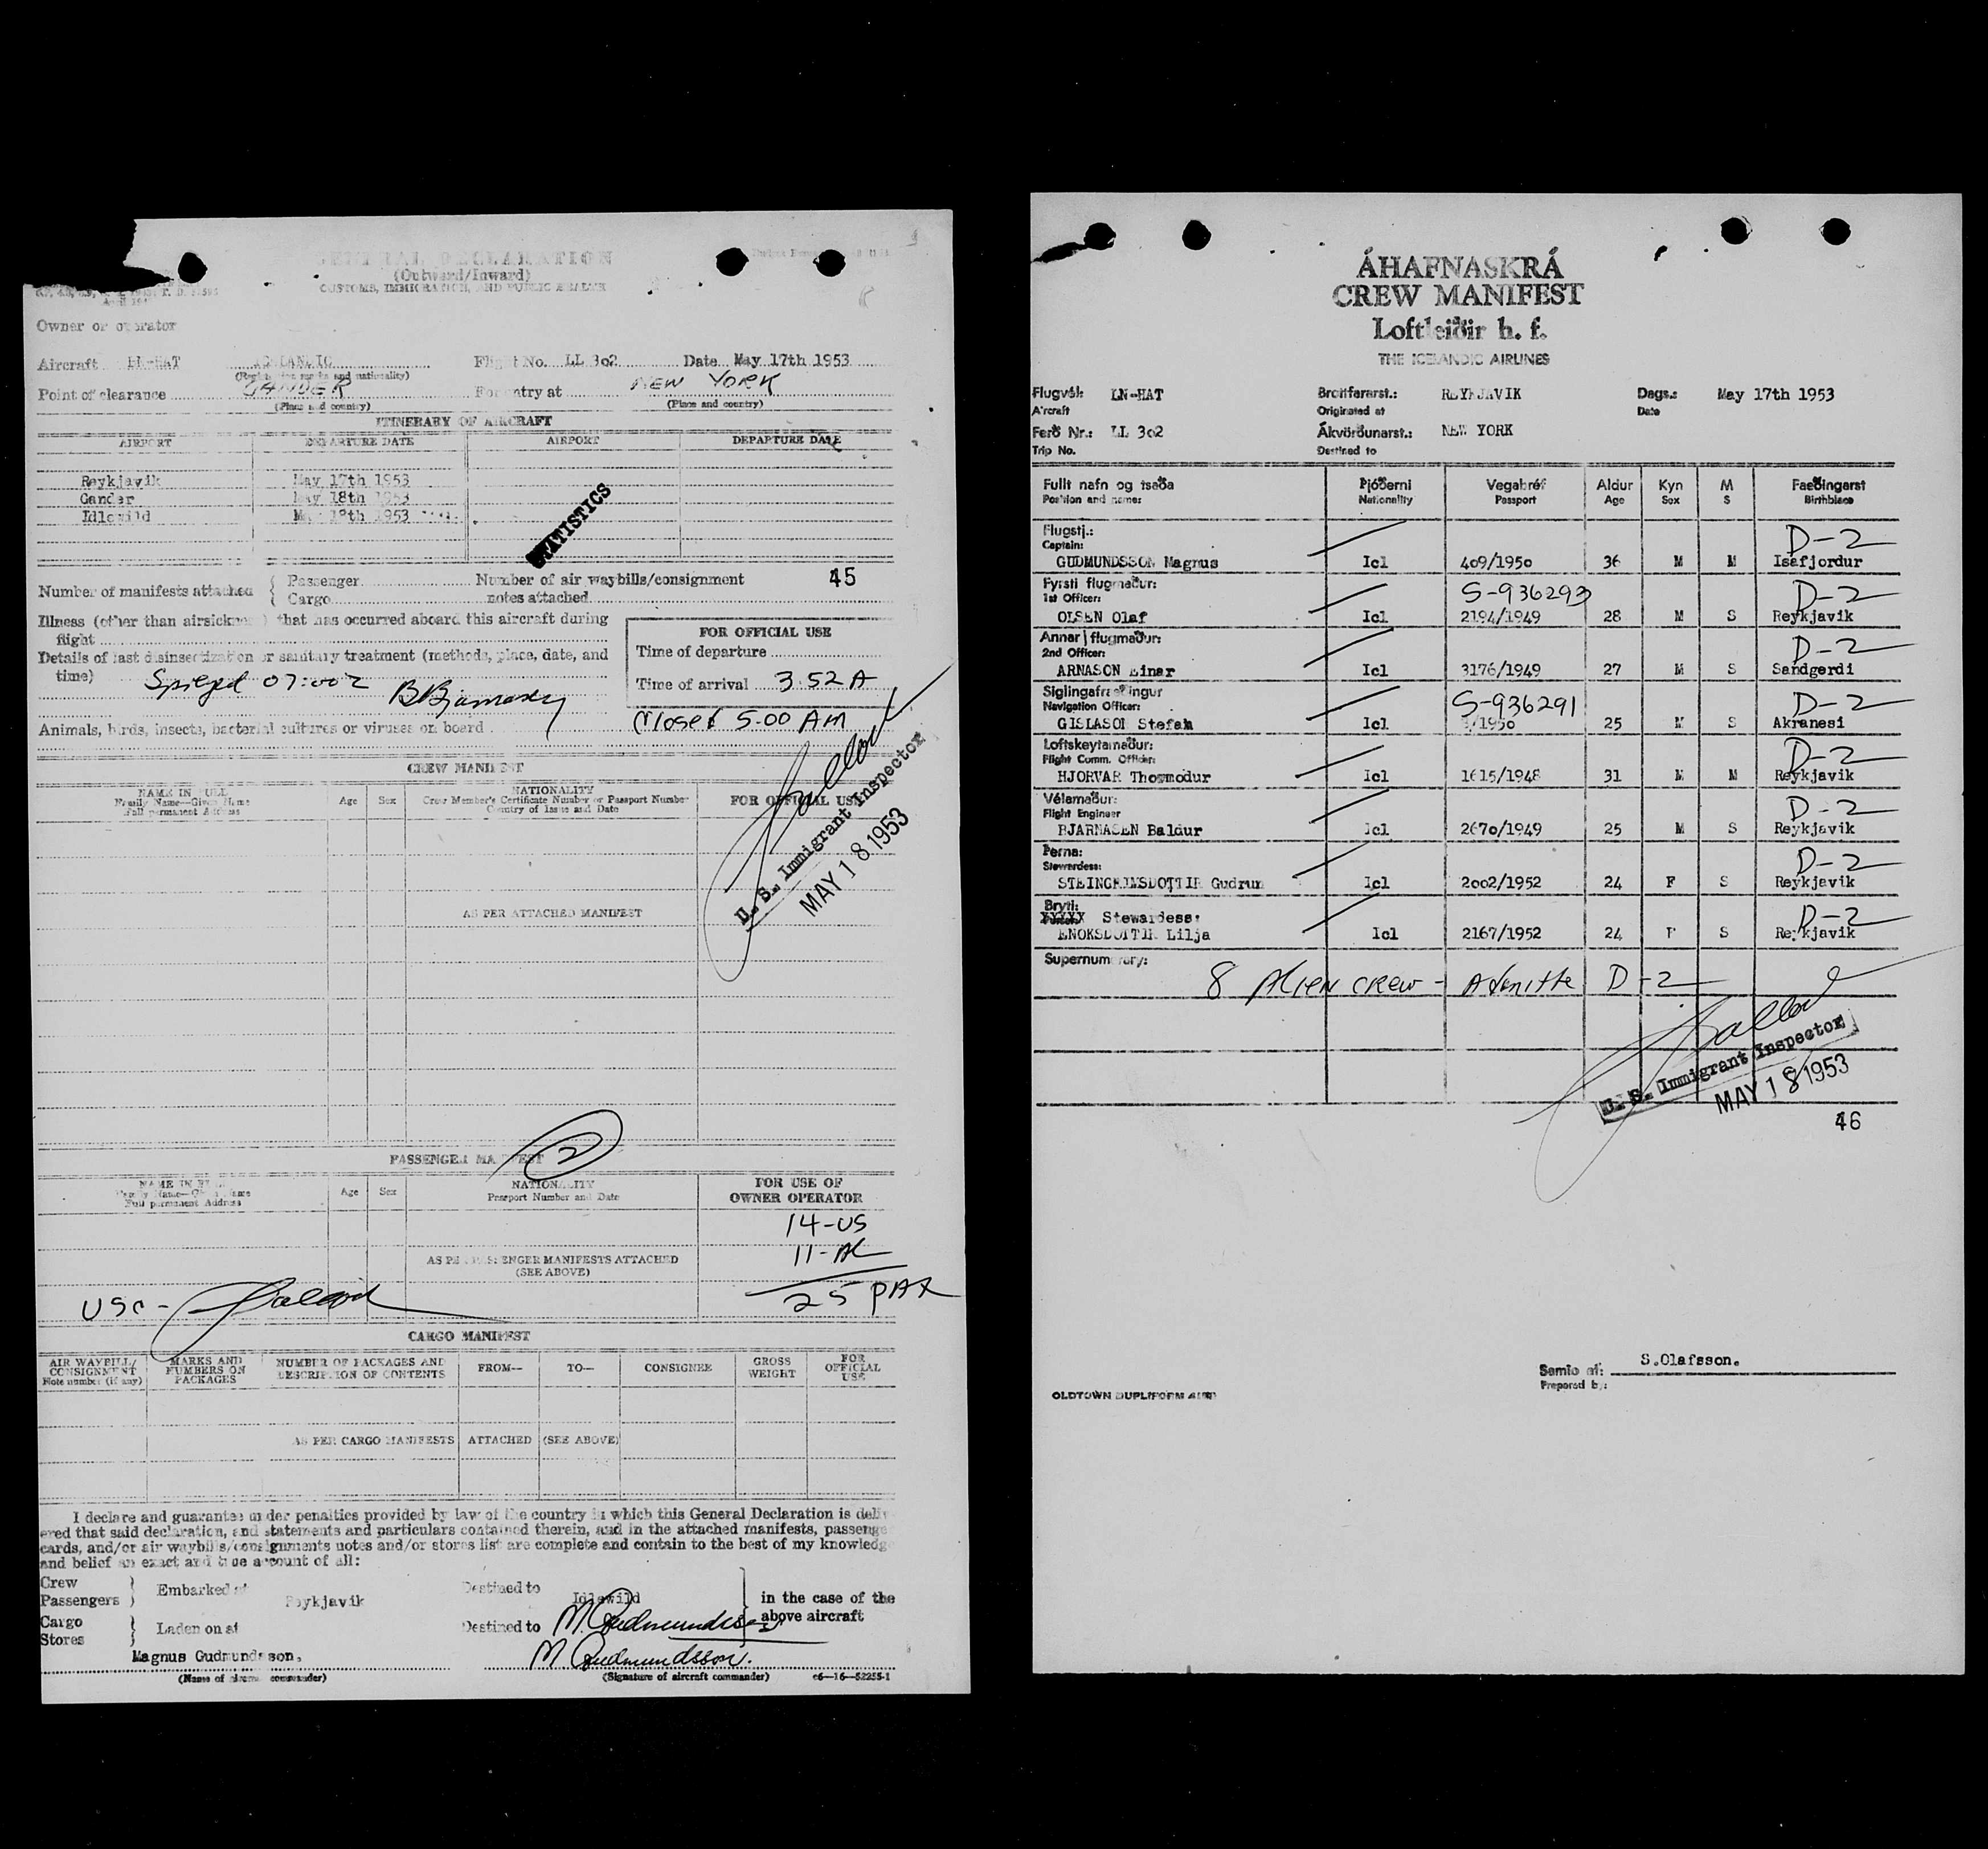 GENERAL DECLARATION
(Outward/Inward)
CUSTOMS, IMMIGRATION, AND PUBLIC HEALTH
Owner or operator
Aircraft LN-HAT ICELANDIC Flight No. LL 302 Date May 17th 1953
(Registration marks and nationality)
Point of clearance GANDER For entry at NEW YORK
(Place and country) (Place and country)
ITINERARY OF AIRCRAFT
AIRPORT DEPARTURE DATE AIRPORT DEPARTURE DATE
Reykjavik May 17th 1953
Gander May 18th 1953
Idlewild May 18th 1953
STATISTICS
Number of manifests attached { Passenger Number of air waybills/consignment 45
Cargo notes attached
Illness (other than airsickness) that has occurred aboard this aircraft during
flight
Details of last disinsectization or sanitary treatment (methods, place, date, and
time) 07:00z
FOR OFFICIAL USE
Time of departure
Time of arrival 3 52 A
Closed 5.00 AM
Animals, birds, insects, bacterial cultures or viruses on board
CREW MANIFEST
NAME IN FULL
Family Name—Given Name
Full permanent Address
Age Sex
NATIONALITY
Crew Member's Certificate Number or Passport Number
Country of Issue and Date
FOR OFFICIAL USE
U. S. Immigrant Inspector
MAY 18 1953
AS PER ATTACHED MANIFEST
2
PASSENGER MANIFEST
NAME IN FULL
Family Name—Given Name
Full permanent Address
Age Sex
NATIONALITY
Passport Number and Date
FOR USE OF
OWNER OPERATOR
14-US
11-AL
25 PAX
AS PER PASSENGER MANIFESTS ATTACHED
(SEE ABOVE)
USC-
CARGO MANIFEST
AIR WAYBILL/
CONSIGNMENT
Note number (if any)
MARKS AND
NUMBERS ON
PACKAGES
NUMBER OF PACKAGES AND
DESCRIPTION OF CONTENTS
FROM— TO— CONSIGNEE
GROSS
WEIGHT
FOR
OFFICIAL
USE
AS PER CARGO MANIFESTS ATTACHED (SEE ABOVE)
I declare and guarantee under penalties provided by law of the country in which this General Declaration is deliv
ered that said declaration, and statements and particulars contained therein, and in the attached manifests, passenge
cards, and/or air waybills/consignments notes and/or stores list are complete and contain to the best of my knowledg
and belief an exact and true account of all:
Crew
Passengers } Embarked at Reykjavik Destined to Idlewild
Cargo
Stores } Laden on at Destined to
in the case of the
above aircraft
M Gudmundsson
Magnus Gudmundsson. M Gudmundsson.
(Name of aircraft commander) (Signature of aircraft commander) c6—16—52255-1
ÁHAFNASKRÁ
CREW MANIFEST
Loftleiðir h. f.
THE ICELANDIC AIRLINES
Flugvél: LN-HAT Brottfararst.: REYKJAVIK Dags.: May 17th 1953
Aircraft Originated at Date
Ferð Nr.: LL 302 Ákvörðunarst.: NEW YORK
Trip No. Destined to
Fullt nafn og staða Þjóðerni Vegabréf Aldur Kyn M Fæðingarst
Position and name: Nationality Passport Age Sex S Birthplace
Flugstj.:
Captain: D-2
GUDMUNDSSON Magnus Icl 409/1950 36 M M Isafjordur
Fyrsti flugmaður:
1st Officer: S-936293 D-2
OLSEN Olaf Icl 2194/1949 28 M S Reykjavik
Annar flugmaður:
2nd Officer: D-2
ARNASON Einar Icl 3176/1949 27 M S Sandgerdi
Siglingafræðingur
Navigation Officer: S-936291 D-2
GISLASON Stefan Icl /1950 25 M S Akranesi
Loftskeytamaður:
Flight Comm. Officer: D-2
HJORVAR Thormodur Icl 1615/1948 31 M M Reykjavik
Vélamaður:
Flight Engineer D-2
BJARNASEN Baldur Icl 2670/1949 25 M S Reykjavik
Þerna:
Stewardess: D-2
STEINGRIMSDOTTIR Gudrun Icl 2002/1952 24 F S Reykjavik
Bryti:
XXXXX Stewardess: D-2
ENOKSDOTTIR Lilja Icl 2167/1952 24 F S Reykjavik
Supernumerary:
8 Alien Crew - Admitte D-2
U. S. Immigrant Inspector
MAY 18 1953
46
Samið af: S.Olafsson.
Prepared by:
OLDTOWN DUPLIFORM